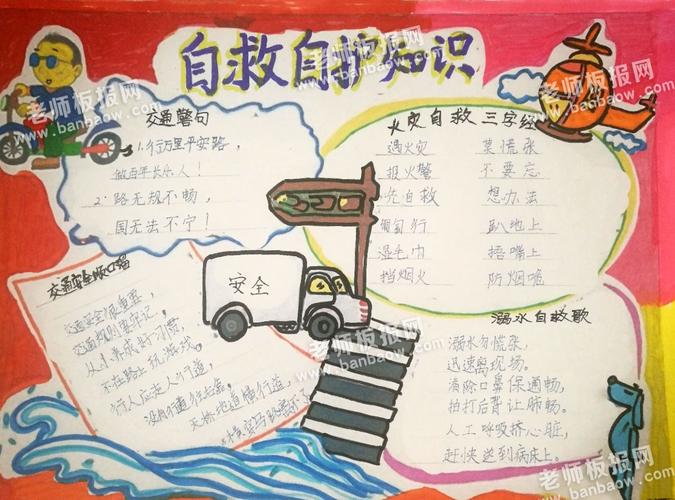 自救自护知识
老师板报网
www.banbaow.com
老师板报网
www.banbaow.com
交通警句
1.行万里平安路,
做百年长乐人!
2.路无规不畅,
国无法不宁!
火灾自救三字经
遇火灾 莫慌张
报火警 不要忘
先自救 想办法
匍匐行 趴地上
湿毛巾 捂嘴上
挡烟火 防烟呛
安全
交通安全顺口溜
交通安全很重要,
交通规则要牢记。
从小养成好习惯,
不在路上玩游戏。
行人应走人行道,
没有行道往右靠。
天桥地道横行道,
溺水自救歌
溺水勿慌张,
迅速离现场。
清除口鼻保通畅,
拍打后背让肺畅。
人工呼吸挤心脏,
赶快送到病床上。
老师板报网
www.banbaow.com
老师板报网
www.banbaow.com